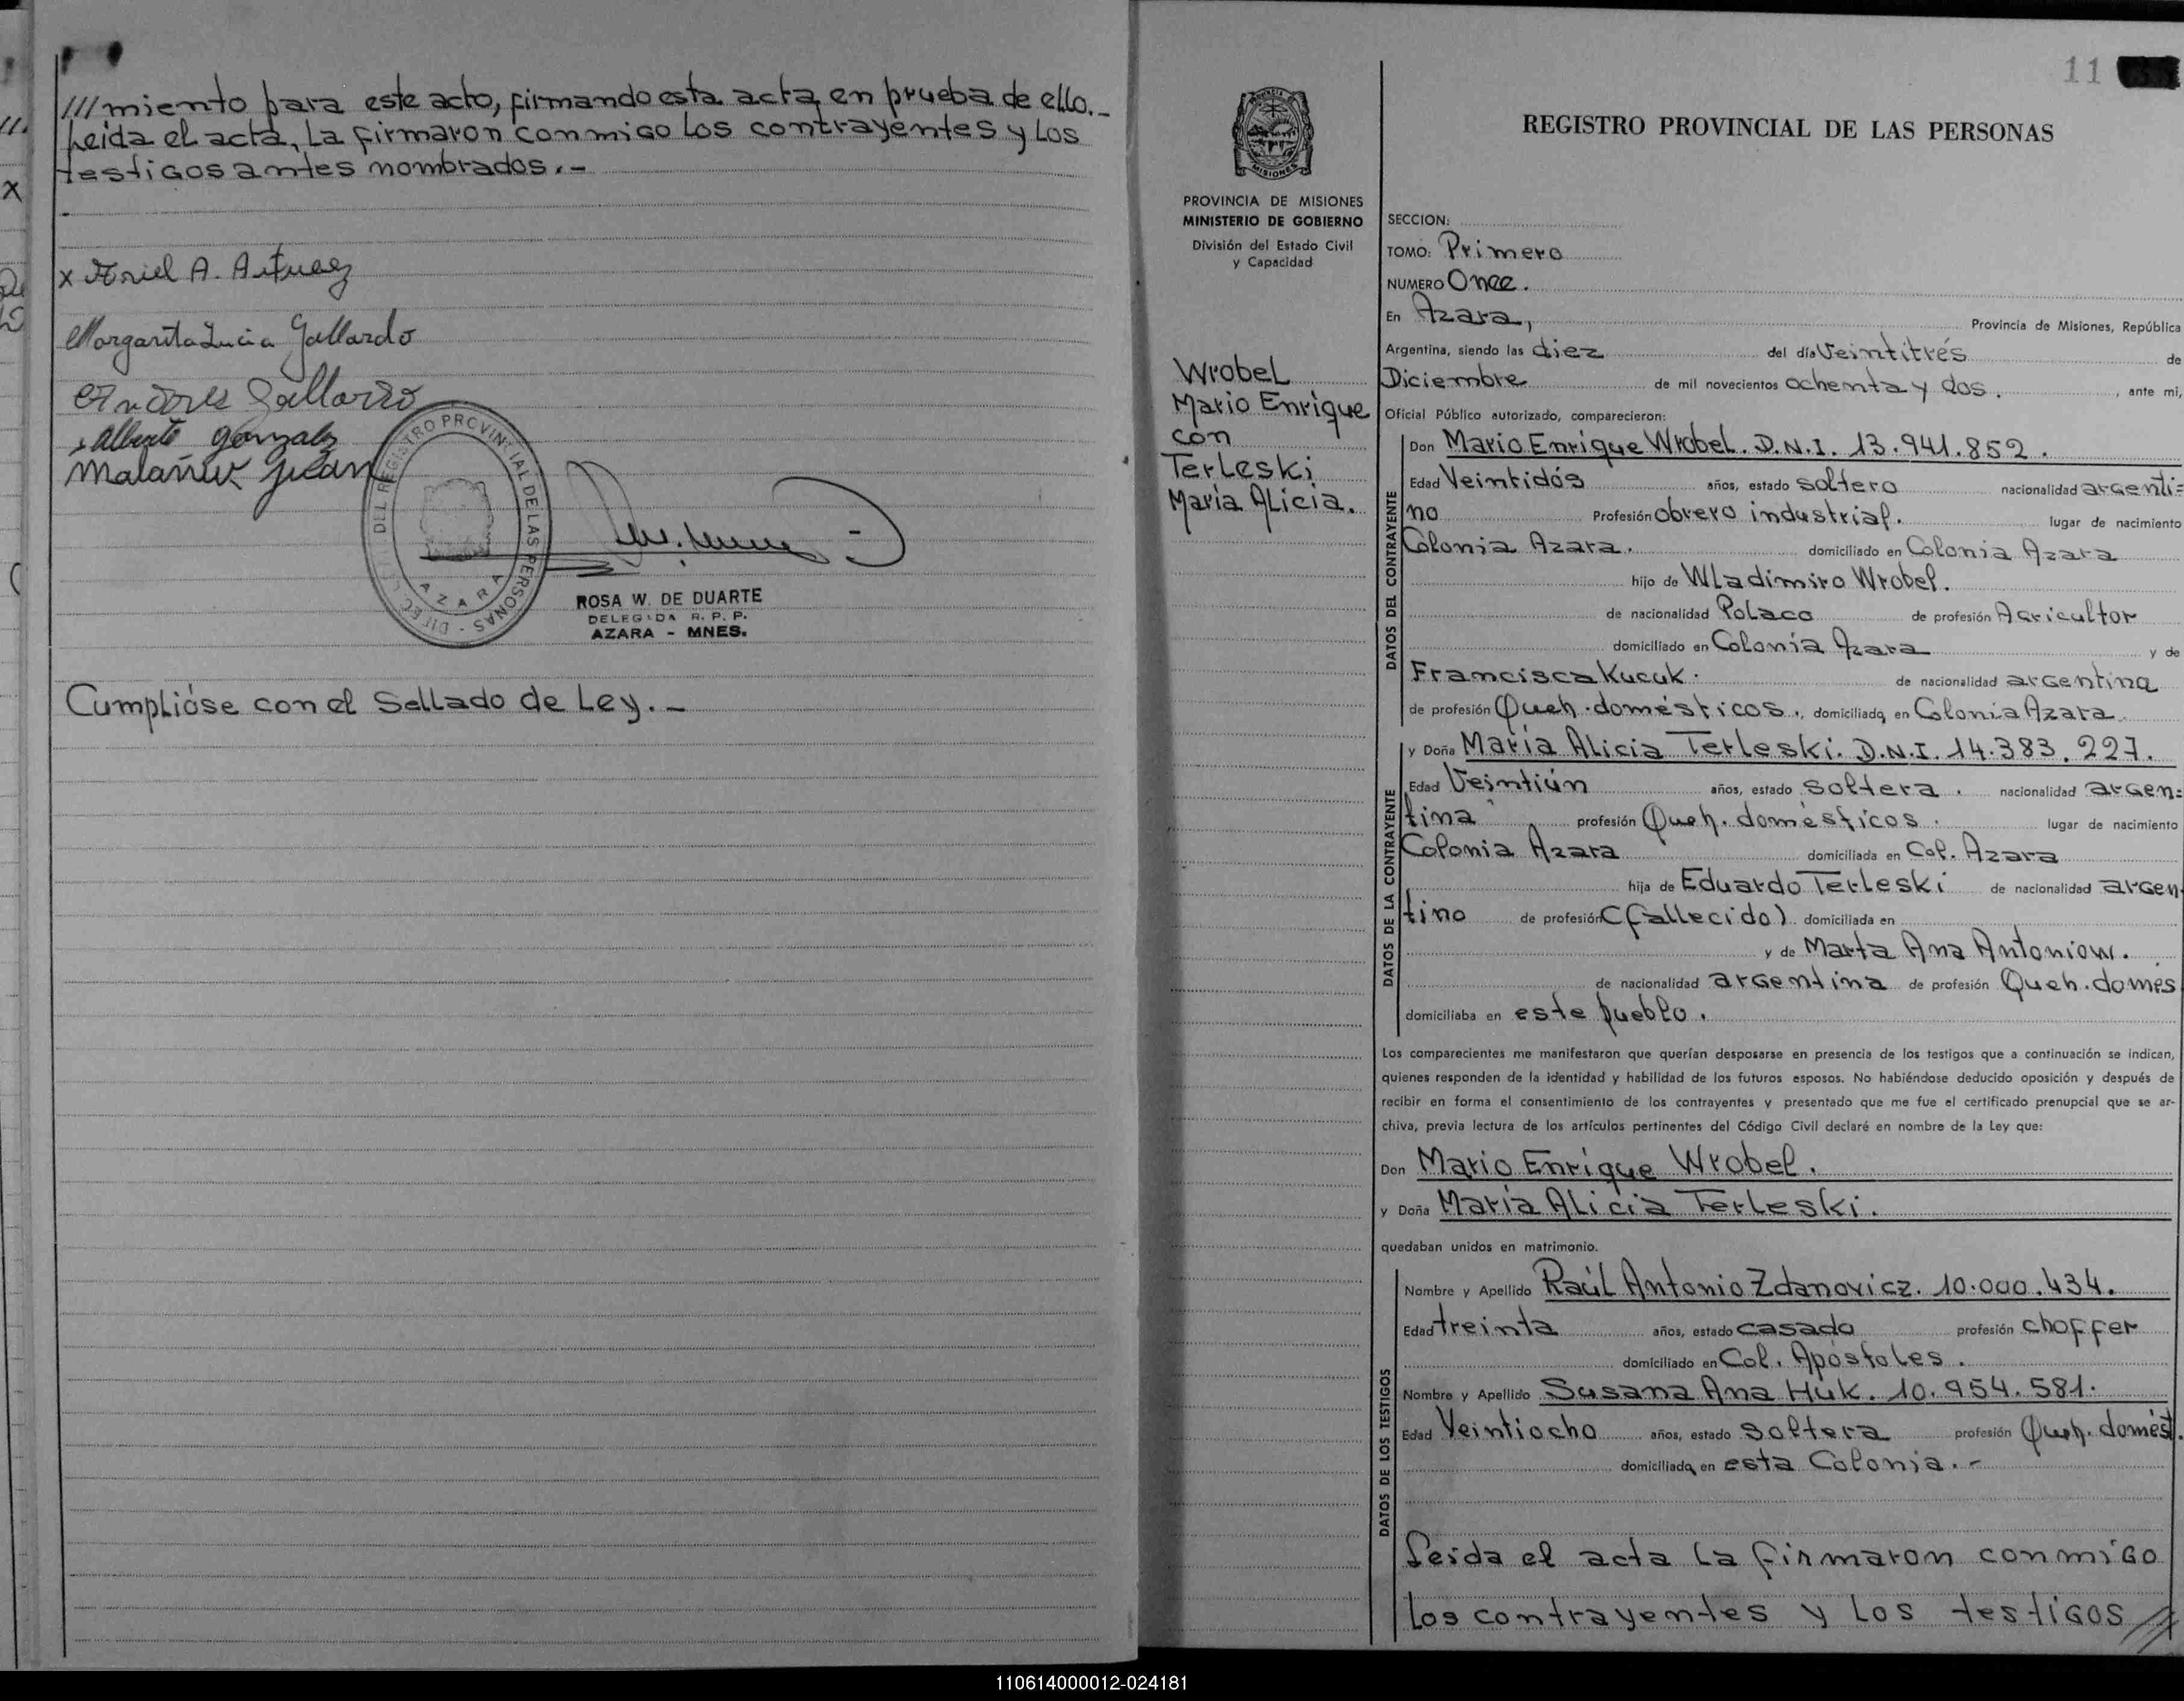 ///miento para este acto, firmando esta acta en prueba de ello.-
Leida el acta, la firmaron conmigo los contrayentes y los
testigos antes nombrados.-
x Ariel A. Artuez
Margarita Lucia Gallardo
Andres Gallardo
x Alberto Gonzalez
Malañuk Juan
DEL REGISTRO PROVINTIAL DE LAS PERSONAS
AZARA
ROSA W. DE DUARTE
DELEGADA R. P. P.
AZARA - MNES.
Cumplióse con el Sellado de Ley.-
11
PROVINCIA DE MISIONES
MINISTERIO DE GOBIERNO
División del Estado Civil
y Capacidad
Wrobel
Mario Enrique
con
Terleski
María Alicia.
REGISTRO PROVINCIAL DE LAS PERSONAS
SECCION:
TOMO: Primero
NUMERO Once.
En Azara, Provincia de Misiones, República
Argentina, siendo las diez del día Veintitrés de
Diciembre de mil novecientos ochenta y dos. , ante mi,
Oficial Público autorizado, comparecieron:
DATOS DEL CONTRAYENTE
Don Mario Enrique Wrobel. D.N.I. 13.941.852.
Edad Veintidós años, estado soltero nacionalidad argenti=
no Profesión obrero industrial. lugar de nacimiento
Colonia Azara. domiciliado en Colonia Azara
hijo de Wladimiro Wrobel.
de nacionalidad Polaco de profesión Agricultor
domiciliado en Colonia Azara y de
Francisca Kucuk. de nacionalidad argentina
de profesión Queh. domésticos., domiciliada en Colonia Azara.
DATOS DE LA CONTRAYENTE
y Doña María Alicia Terleski. D.N.I. 14.383.227.
Edad Veintiún años, estado soltera. nacionalidad argen=
tina profesión Queh. domésticos. lugar de nacimiento
Colonia Azara domiciliada en Col. Azara
hija de Eduardo Terleski de nacionalidad argen
tino de profesión (fallecido) domiciliada en
y de Marta Ana Antoniow.
de nacionalidad argentina de profesión Queh. domés
domiciliaba en este pueblo.
Los comparecientes me manifestaron que querían desposarse en presencia de los testigos que a continuación se indican,
quienes responden de la identidad y habilidad de los futuros esposos. No habiéndose deducido oposición y después de
recibir en forma el consentimiento de los contrayentes y presentado que me fue el certificado prenupcial que se ar-
chiva, previa lectura de los artículos pertinentes del Código Civil declaré en nombre de la Ley que:
Don Mario Enrique Wrobel.
y Doña María Alicia Terleski.
quedaban unidos en matrimonio.
DATOS DE LOS TESTIGOS
Nombre y Apellido Raúl Antonio Zdanovicz. 10.000.434.
Edad treinta años, estado casado profesión choffer
domiciliado en Col. Apóstoles.
Nombre y Apellido Susana Ana Huk. 10.954.581.
Edad Veintiocho años, estado soltera profesión Queh. domést.
domiciliada en esta Colonia.-
Leida el acta la firmaron conmigo
los contrayentes y los testigos ///
110614000012-024181